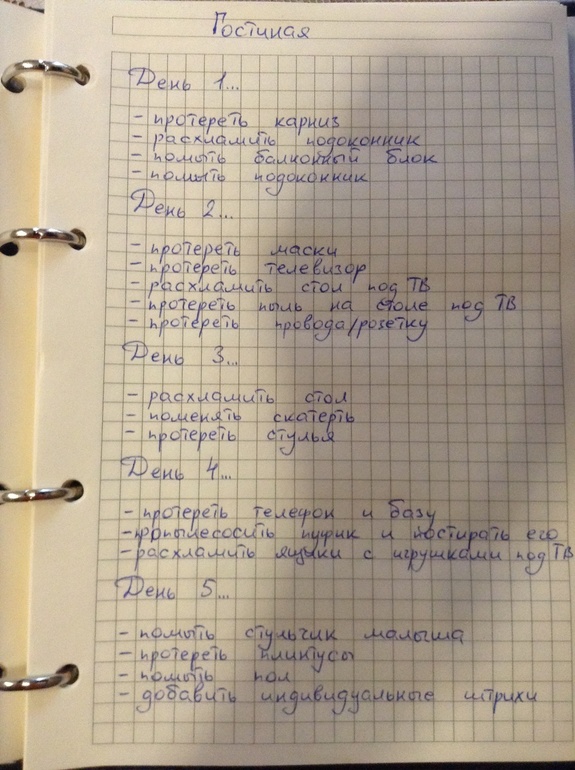 Гостиная
День 1...
- протереть карниз
- расхламить подоконник
- помыть балконный блок
- помыть подоконник
День 2...
- протереть маски
- протереть телевизор
- расхламить стол под ТВ
- протереть пыль на столе под ТВ
- протереть провода/розетку
День 3...
- расхламить стол
- поменять скатерть
- протереть стулья
День 4...
- протереть телефон и базу
- пропылесосить пуфик и постирать его
- расхламить ящики с игрушками под ТВ
День 5...
- помыть стульчик малыша
- протереть плинтусы
- помыть пол
- добавить индивидуальные штрихи